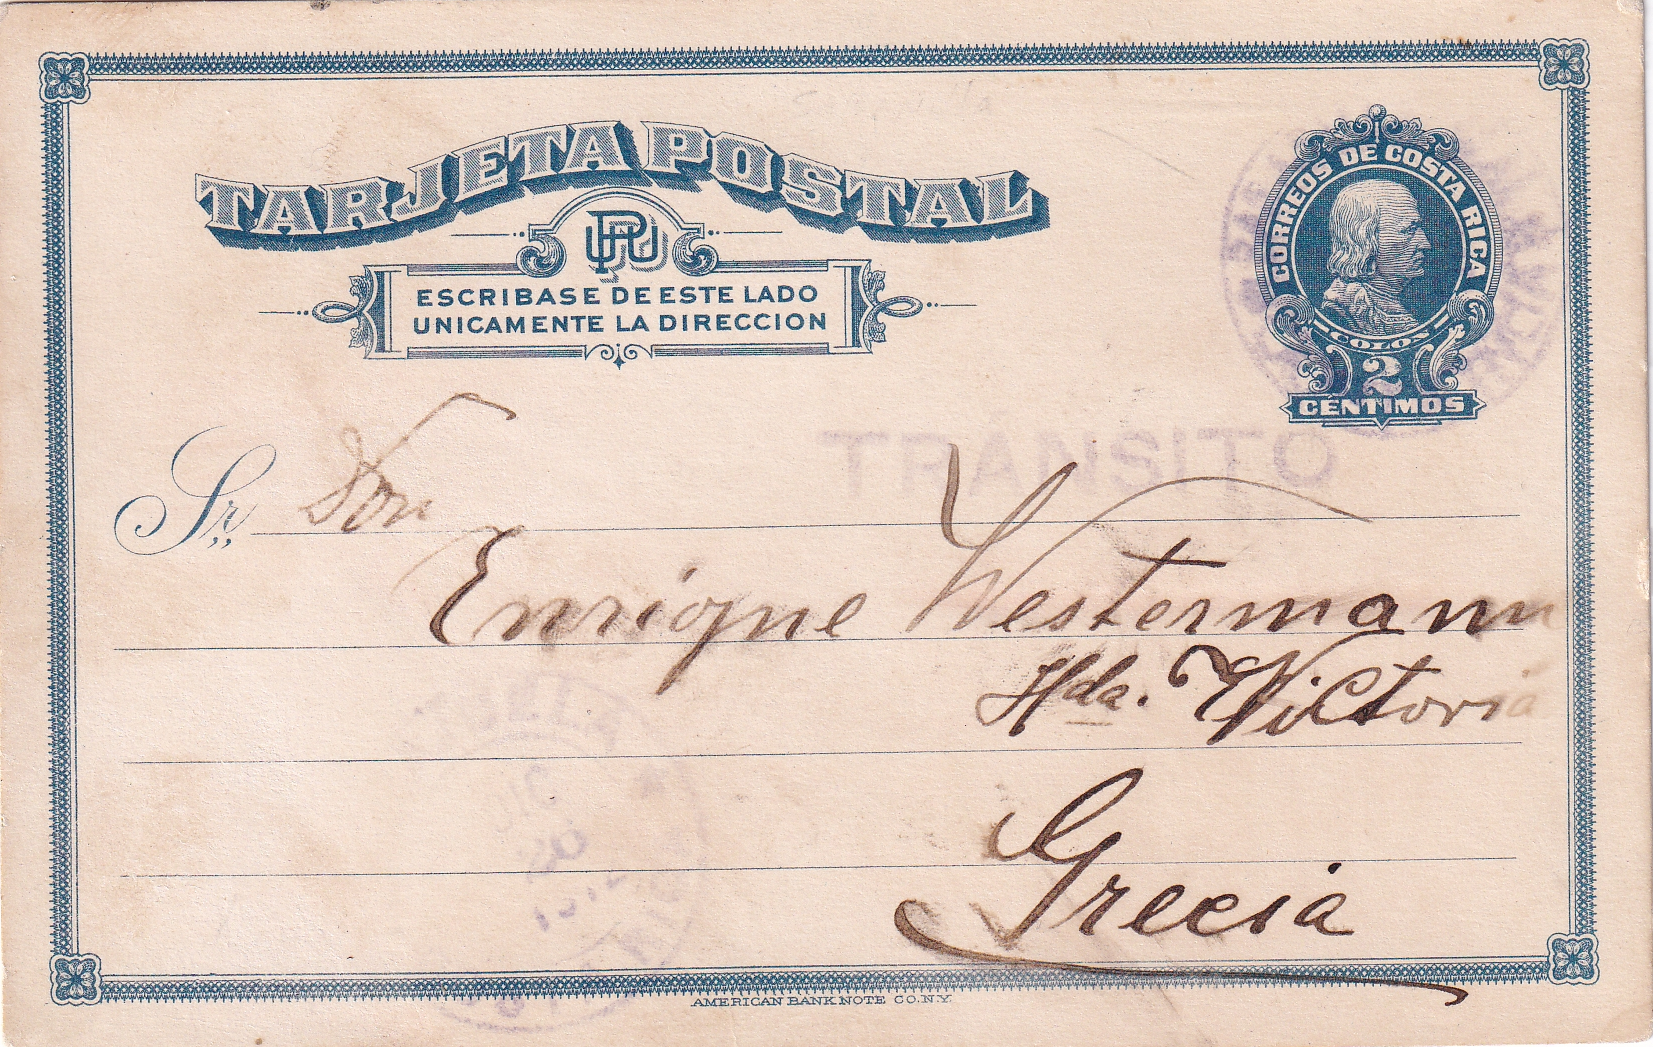 TARJETA POSTAL
UPU
ESCRIBASE DE ESTE LADO
UNICAMENTE LA DIRECCION
CORREOS DE COSTA RICA
COLON
2
CENTIMOS
TRANSITO
Sr. Don
Enrique Westermann
Hda. Victoria
Grecia
AMERICAN BANK NOTE CO. N.Y.